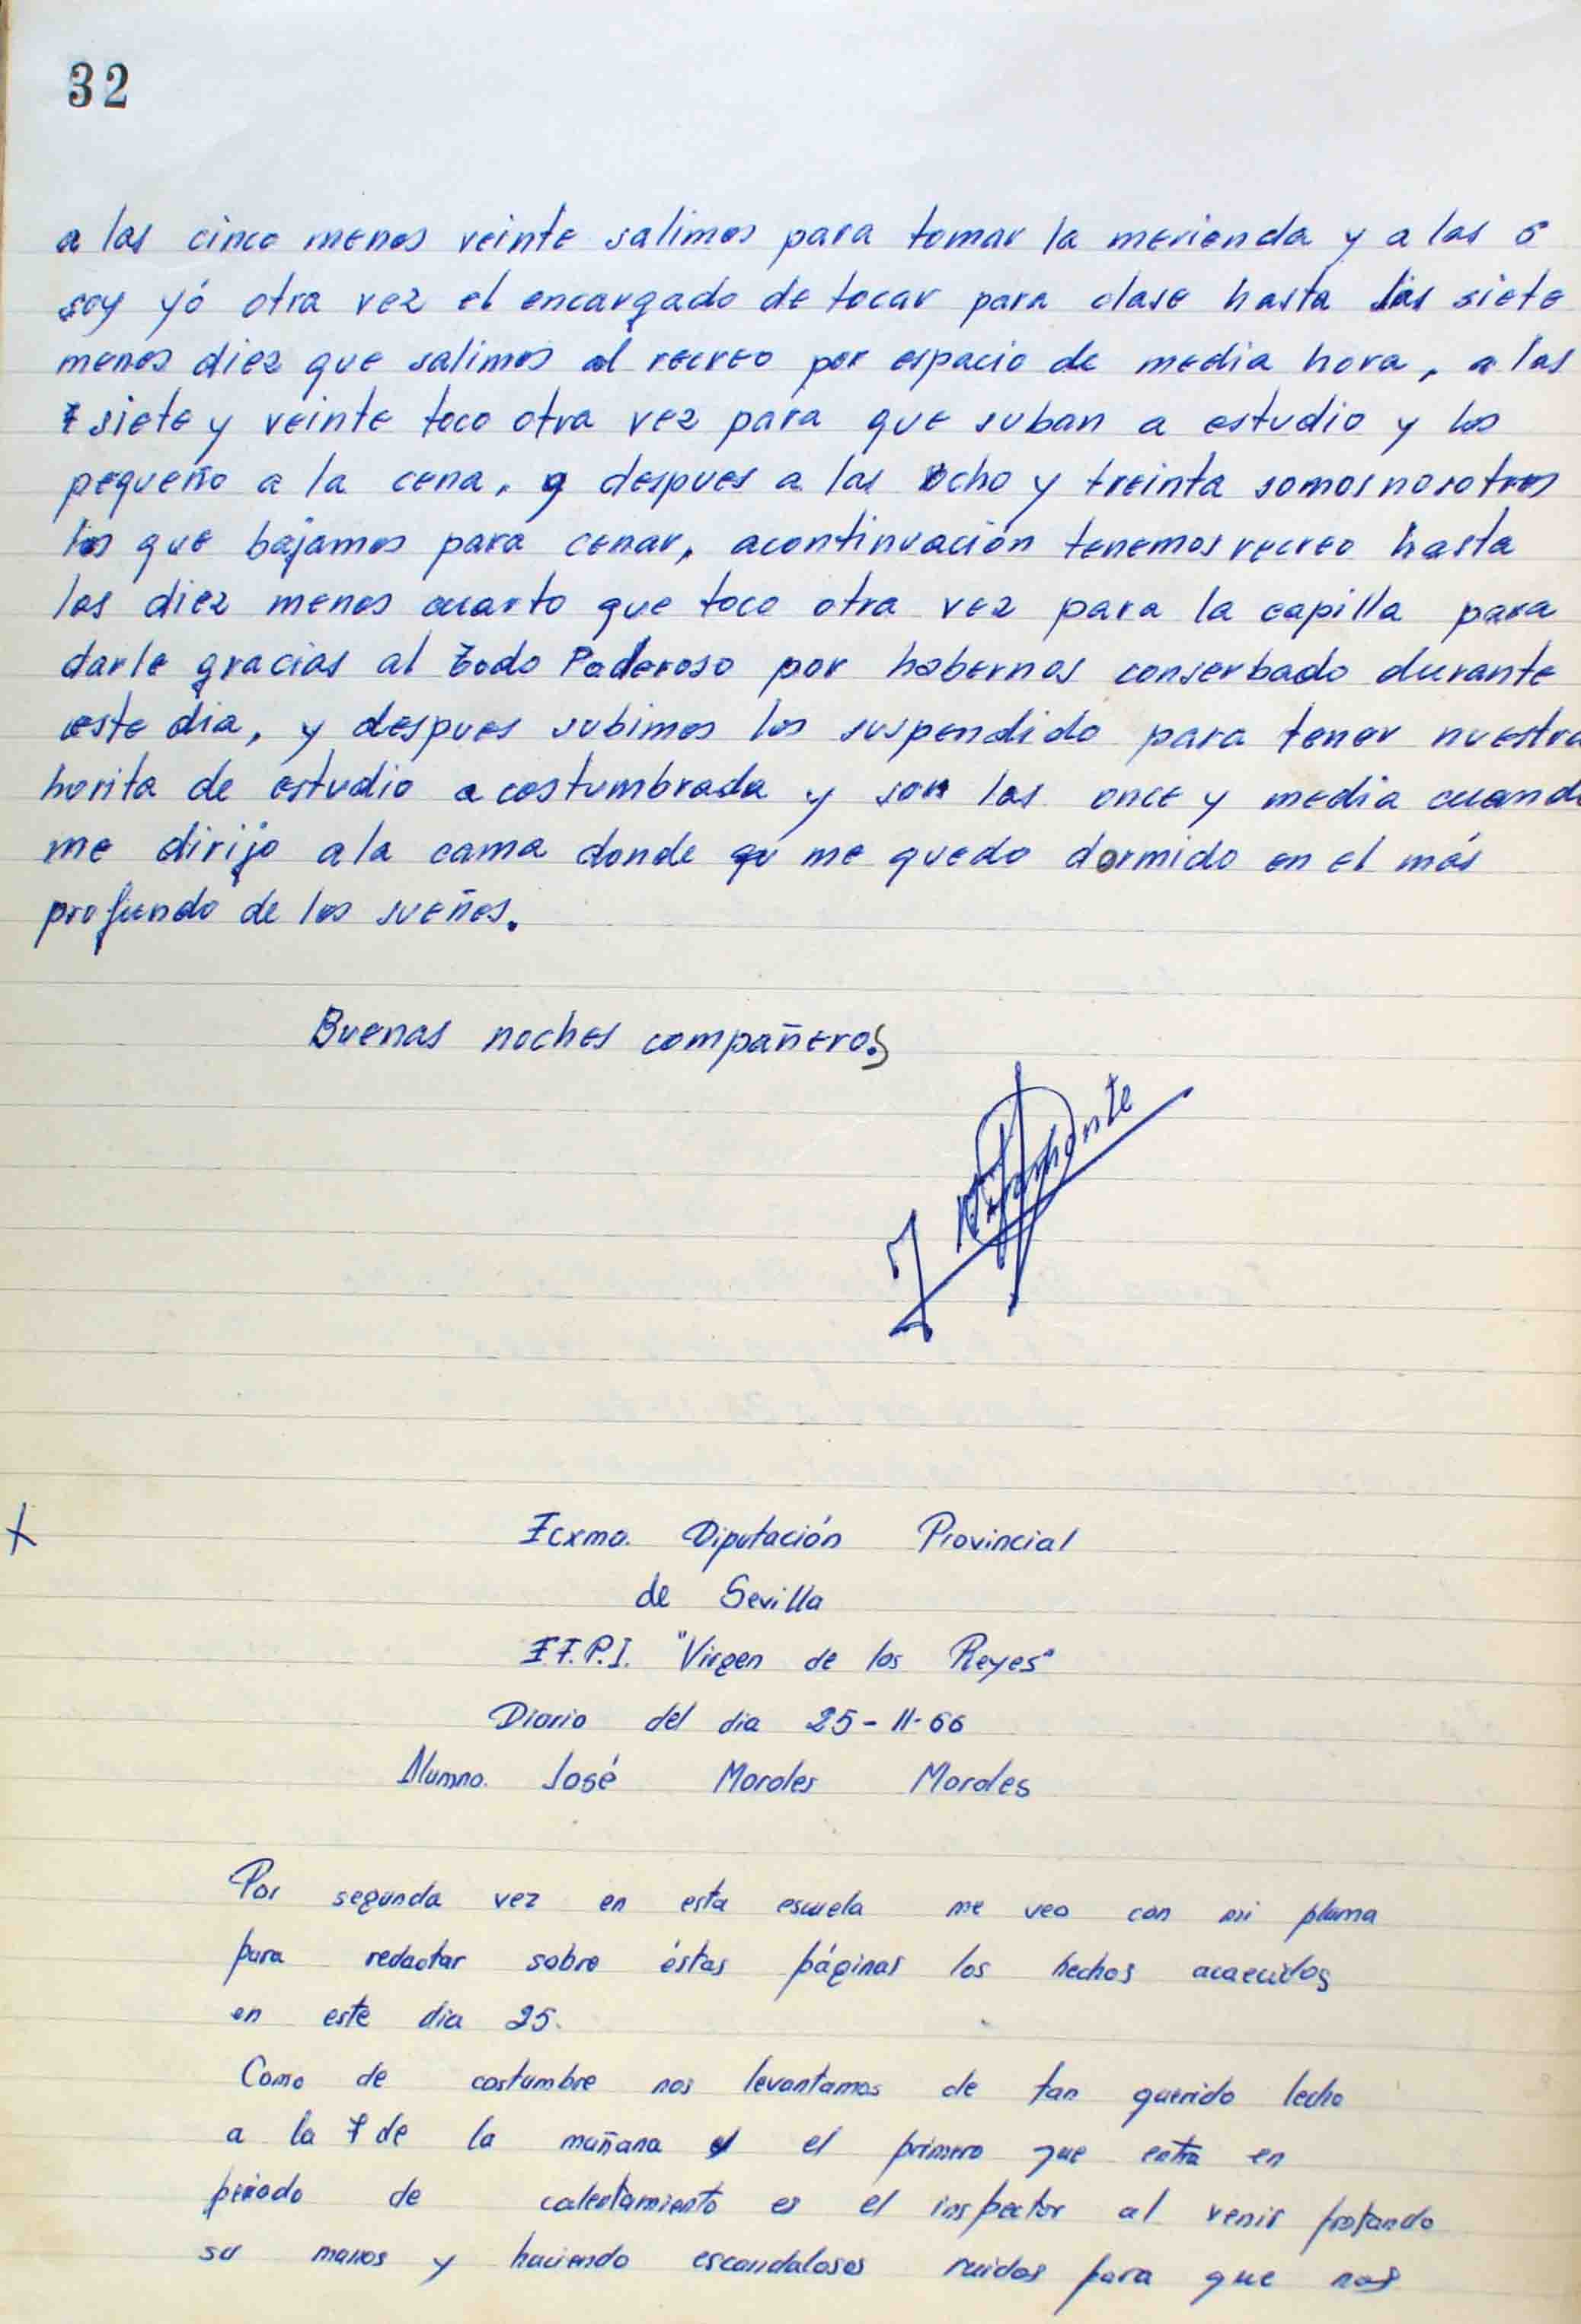 32
a las cinco menos veinte salimos para tomar la merienda y a las 6
soy yó otra vez el encargado de tocar para clase hasta las siete
menos diez que salimos al recreo por espacio de media hora, a las
siete y veinte toco otra vez para que suban a estudio y los
pequeño a la cena, y despues a las ocho y treinta somos nosotros
los que bajamos para cenar, acontinuación tenemos recreo hasta
las diez menos cuarto que toco otra vez para la capilla para
darle gracias al Todo Poderoso por habernos conserbado durante
este dia, y despues subimos los suspendido para tener nuestra
horita de estudio acostumbrada y son las once y media cuando
me dirijo a la cama donde me quedo dormido en el más
profundo de los sueños.
Buenas noches compañeros
J
X
Ecxma. Diputación Provincial
de Sevilla
E.F.P.I. "Virgen de los Reyes"
Diario del dia 25-11-66
Alumno. José Morales Morales
Por segunda vez en esta escuela me veo con mi pluma
para redactar sobre éstas páginas los hechos acaecidos
en este dia 25.
Como de costumbre nos levantamos de tan querido lecho
a la 7 de la mañana el primero que entra en
periodo de calentamiento es el inspector al venir frotando
su manos y haciendo escandalosos ruidos para que nos